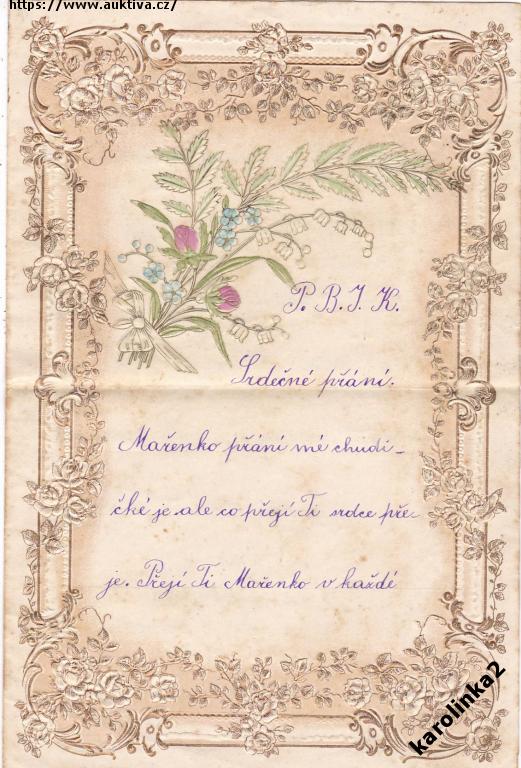 https://www.auktiva.cz/
P. B. J. K.
Srdečné přání.
Mařenko přání mé chudi-
čké je ale co přejí Ti srdce pře-
je. Přejí Ti Mařenko v každé
karolinka2